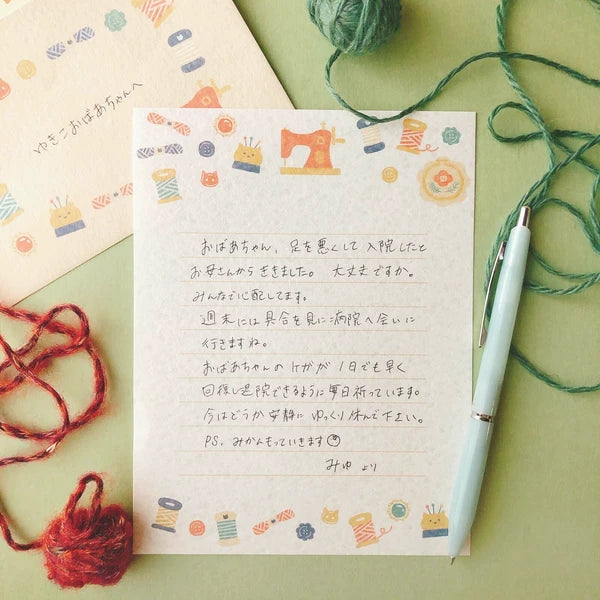 ゆきこおばあちゃんへ
おばあちゃん、足を悪くして入院したと
お母さんからききました。大丈夫ですか。
みんなで心配してます。
週末には具合を見に病院へ会いに
行きますね。
おばあちゃんのケガが1日でも早く
回復し退院できるように毎日祈っています。
今はどうか安静にゆっくり休んで下さい。
PS. みかんもっていきます
みゆより